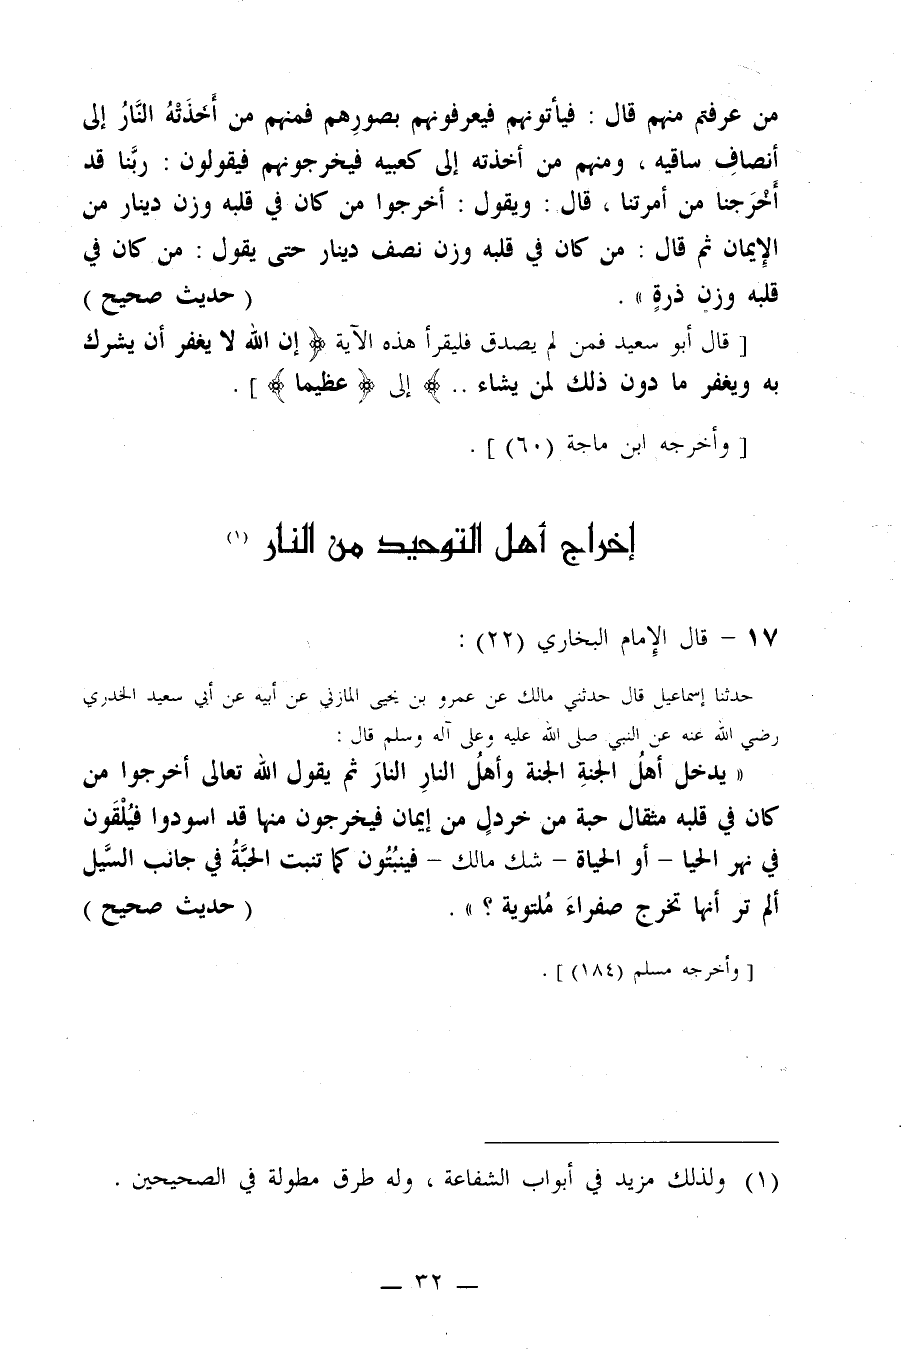 من عرفتم منهم قال : فيأتونهم فيعرفونهم بصورِهم فمنهم من أَخَذَتْهُ النَّارُ إلى
أنصافِ ساقيه ، ومنهم من أخذته إلى كعبيه فيخرجونهم فيقولون : ربَّنا قد
أَخْرَجنا من أمرتنا ، قال : ويقول : أخرجوا من كان في قلبه وزن دينار من
الإِيمان ثم قال : من كان في قلبه وزن نصف دينار حتى يقول : من كان في
قلبه وزن ذرةٍ » . ( حديث صحيح )
[ قال أبو سعيد فمن لم يصدق فليقرأ هذه الآية ﴿ إن الله لا يغفر أن يشرك
به ويغفر ما دون ذلك لمن يشاء .. ﴾ إلى ﴿ عظيما ﴾ ] .
[ وأخرجه ابن ماجة (٦٠) ] .
إخراج أهل التوحيد من النار (١)
١٧ – قال الإِمام البخاري (٢٢) :
حدثنا إسماعيل قال حدثني مالك عن عمرو بن يحيى المازني عن أبيه عن أبي سعيد الخدري
رضي الله عنه عن النبي صلى الله عليه وعلى آله وسلم قال :
« يدخل أهلُ الجنةِ الجنة وأهلُ النارِ النارَ ثم يقول الله تعالى أخرجوا من
كان في قلبه مثقال حبة من خردلٍ من إيمان فيخرجون منها قد اسودوا فيُلْقَون
في نهر الحيا – أو الحياة – شك مالك – فينبُتُون كما تنبت الحبَّةُ في جانب السَّيل
ألم تر أنها تخرج صفراءَ مُلتوية ؟ » . ( حديث صحيح )
[ وأخرجه مسلم (١٨٤) ] .
(١) ولذلك مزيد في أبواب الشفاعة ، وله طرق مطولة في الصحيحين .
— ٣٢ —